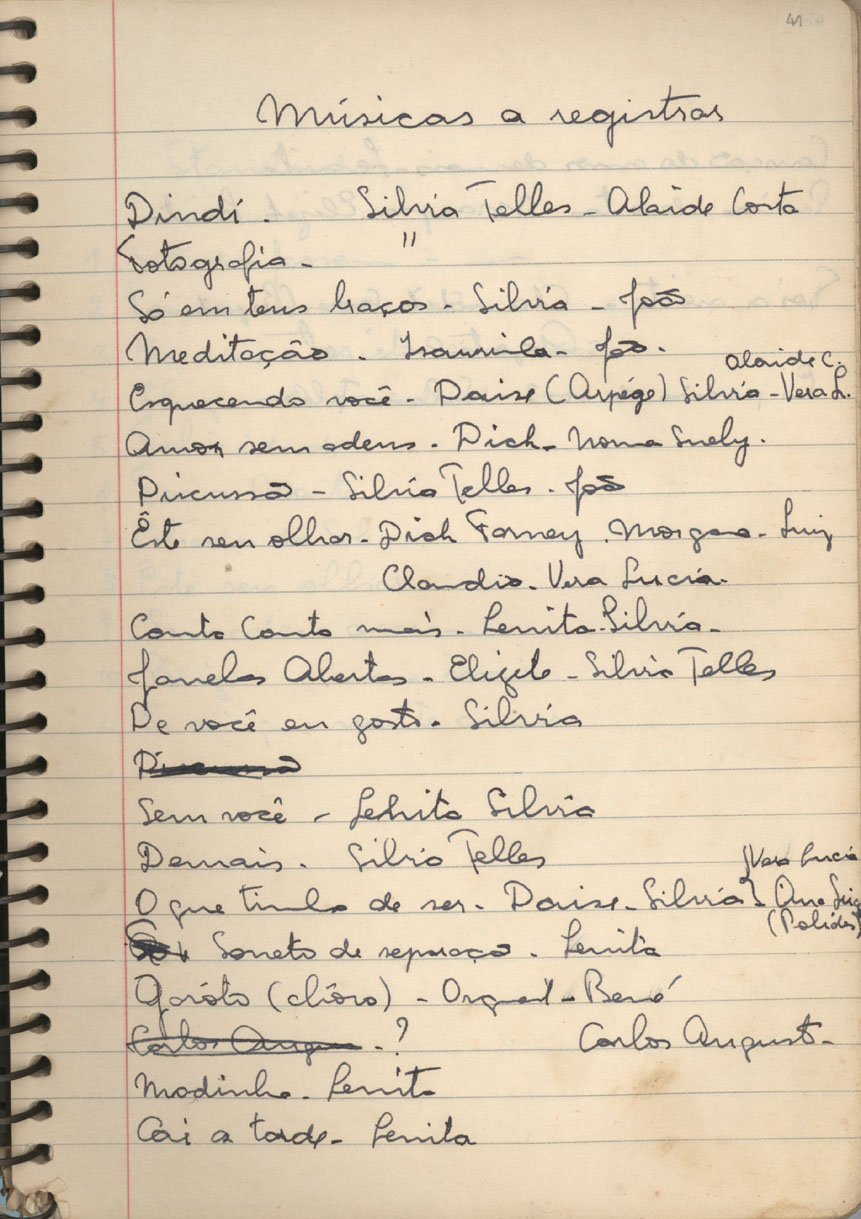 41
Músicas a registrar
Dindí. Silvia Telles - Alaide Costa
Fotografia - "
Só em teus braços - Silvia - João
Meditação - Isaurinha - João.
Alaide C.
Esquecendo você - Daise (Arpége) Silvia - Vera L.
Amor sem adeus - Dick - Norma Suely.
Discussão - Silvia Telles - João
Êste seu olhar - Dick Farney. Morgana - Luiz
Claudio - Vera Lucia.
Canta Canta mais - Lenita - Silvia -
Janelas Abertas - Elizete - Silvia Telles
De você eu gosto - Silvia
Discussão
Sem você - Lenita Silvia
Demais. Silvia Telles
Vera Lucia
O que tinha de ser - Daise - Silvia - Ana Luiz
(Polidor)
Soneto de separação - Lenita
Garôto (chôro) - Orquest - Bené
Carlos Augus - ? Carlos August -
Modinha - Lenita
Cai a tarde - Lenita